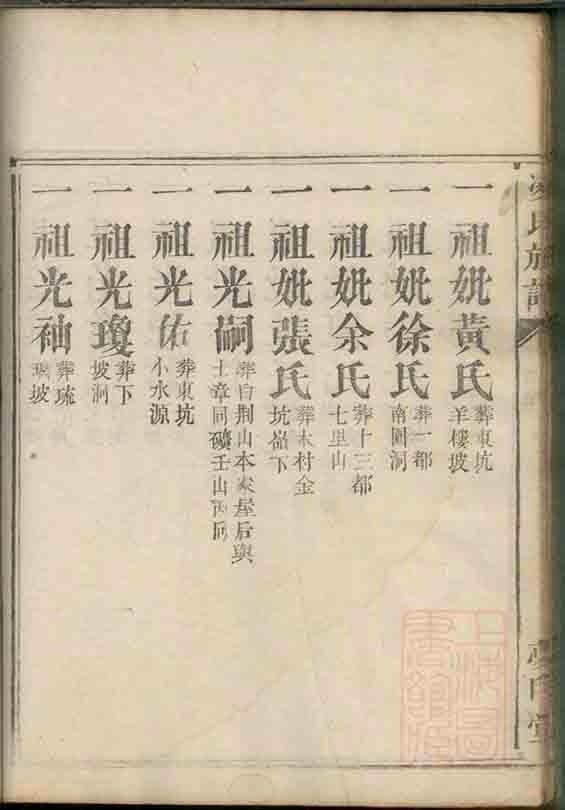 氏族譜
一祖妣黃氏
葬東坑
羊樓坡
一祖妣徐氏
葬一都
南洞
一祖妣余氏
葬十三都
七里山
一祖妣張氏
葬木村金
坑嶺下
一祖光嗣
葬白荆山本家屋后與
士章同礦壬山丙向
一祖光佑
葬東坑
小水源
一祖光瓊
葬下
坡洞
一祖光袖
葬琉
璃坡
堂
上海圖
書館藏